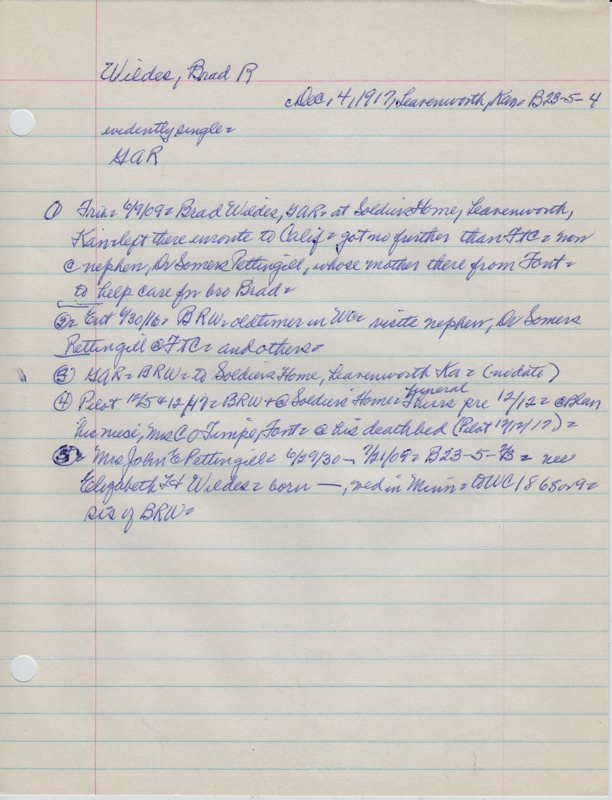 Wildes, Brad R
Dec, 4, 1917, Leavenworth, Kan= B23-5-4
evidently single=
GAR
① Trib= 6/9/09= Brad Wildes, GAR= at Soldiers Home, Leavenworth,
Kan= left there enroute to Calif= got no further than FTC= now
c nephew, Dr Somers Pettingill, whose mother there from Font=
to help care for bro Brad=
②= Ent 6/30/16= BRW= oldtimer in WC= visits nephew, Dr Somers
Pettingill @ FTC= and others=
③ GAR= BRW= to Soldiers Home, Leavenworth Ka= (no date)
④ Pilot 12/5 & 12/17= BRW + @ Soldiers Home= funeral Thurs pre 12/12= @
his niece, Mrs C O Timpe, Font= @ his deathbed (Pilot 12/12/17)=
⑤= Mrs John E Pettingill= 6/29/30 - 7/21/09= B23-5-3= nee
Elizabeth Wildes= born —, wed in Minn= to WC 1868 or 9=
sis of BRW=